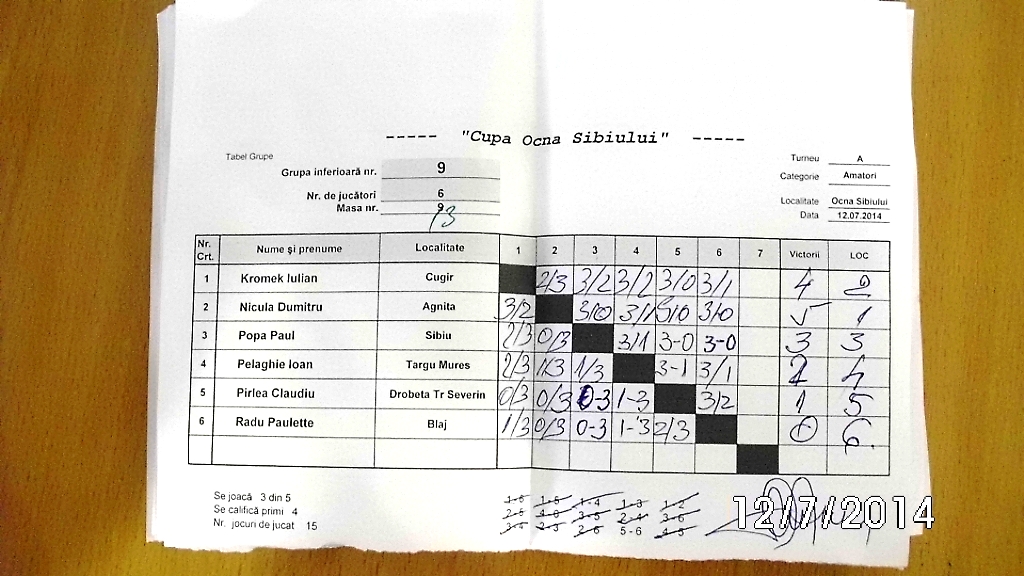 ----- "Cupa Ocna Sibiului" -----
Tabel Grupe
Turneu A
Grupa inferioară nr. 9
Categorie Amatori
Nr. de jucători 6
Localitate Ocna Sibiului
Masa nr. 9
Data 12.07.2014
13
Nr. Crt. Nume şi prenume Localitate 1 2 3 4 5 6 7 Victorii LOC
1 Kromek Iulian Cugir 2/3 3/2 3/2 3/0 3/1 4 2
2 Nicula Dumitru Agnita 3/2 3/0 3/1 3/0 3/0 5 1
3 Popa Paul Sibiu 2/3 0/3 3/1 3-0 3-0 3 3
4 Pelaghie Ioan Targu Mures 2/3 1/3 1/3 3-1 3/1 2 4
5 Pirlea Claudiu Drobeta Tr Severin 0/3 0/3 0-3 1-3 3/2 1 5
6 Radu Paulette Blaj 1/3 0/3 0-3 1-3 2/3 0 6
Se joacă 3 din 5
Se califică primi 4
Nr. jocuri de jucat 15
1-6 1-5 1-4 1-3 1-2
2-5 4-6 3-5 2-4 3-6
3-4 2-3 2-6 5-6 4-5
12/7/2014